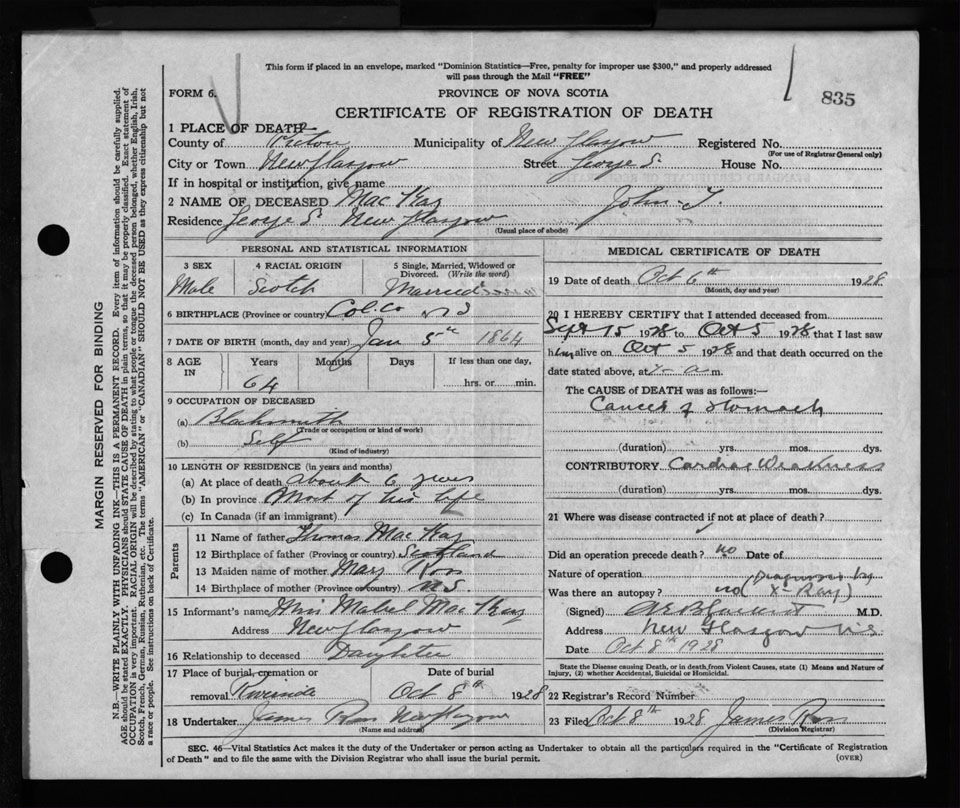 This form if placed in an envelope, marked "Dominion Statistics—Free, penalty for improper use $300," and properly addressed
will pass through the Mail "FREE"
FORM 6.
PROVINCE OF NOVA SCOTIA
835
CERTIFICATE OF REGISTRATION OF DEATH
1 PLACE OF DEATH
County of Pictou Municipality of New Glasgow Registered No.
(For use of Registrar General only)
City or Town New Glasgow Street George S. House No.
If in hospital or institution, give name
2 NAME OF DECEASED Mac Kay John T.
Residence George S. New Glasgow
(Usual place of abode)
PERSONAL AND STATISTICAL INFORMATION
3 SEX 4 RACIAL ORIGIN 5 Single, Married, Widowed or
Divorced. (Write the word)
Male Scotch Married
6 BIRTHPLACE (Province or country) Col. Co N S
7 DATE OF BIRTH (month, day and year) Jan 5th 1864
8 AGE IN Years Months Days If less than one day,
64 hrs. or min.
9 OCCUPATION OF DECEASED
(a) Blacksmith
(Trade or occupation or kind of work)
(b) Self
(Kind of industry)
10 LENGTH OF RESIDENCE (in years and months)
(a) At place of death about 6 years
(b) In province Most of his life
(c) In Canada (if an immigrant)
Parents
11 Name of father Thomas Mac Kay
12 Birthplace of father (Province or country) Scotland
13 Maiden name of mother Mary Ross
14 Birthplace of mother (Province or country) N.S.
15 Informant's name Miss Mabel Mac Kay
Address New Glasgow
16 Relationship to deceased Daughter
17 Place of burial, cremation or Date of burial
removal Oct 8th 1928
18 Undertaker James Ross New Glasgow
(Name and address)
MEDICAL CERTIFICATE OF DEATH
19 Date of death Oct 6th 1928
(Month, day and year)
20 I HEREBY CERTIFY that I attended deceased from
Sept 15 1928 to Oct 5 1928 that I last saw
him alive on Oct 5 1928 and that death occurred on the
date stated above, at a m.
The CAUSE of DEATH was as follows:—
Cancer of Stomach
(duration) yrs. mos. dys.
CONTRIBUTORY Cardiac Weakness
(duration) yrs. mos. dys.
21 Where was disease contracted if not at place of death?
Did an operation precede death? no Date of
Nature of operation
Was there an autopsy? no (Diagnosis by
X-Ray)
(Signed) M.D.
Address New Glasgow N.S
Date Oct 8th 1928
State the Disease causing Death, or in death from Violent Causes, state (1) Means and Nature of
Injury, (2) whether Accidental, Suicidal or Homicidal.
22 Registrar's Record Number
23 Filed Oct 8th 1928 James Ross
(Division Registrar)
SEC. 46—Vital Statistics Act makes it the duty of the Undertaker or person acting as Undertaker to obtain all the particulars required in the "Certificate of Registration
of Death" and to file the same with the Division Registrar who shall issue the burial permit.
(OVER)
MARGIN RESERVED FOR BINDING
N.B.—WRITE PLAINLY WITH UNFADING INK—THIS IS A PERMANENT RECORD. Every item of information should be carefully supplied.
AGE should be stated EXACTLY. PHYSICIANS should STATE CAUSE OF DEATH in plain terms, so that it may be properly classified. Exact statement of
OCCUPATION is very important. RACIAL ORIGIN will be described by stating to what people or tongue the deceased person belonged, whether English, Irish,
Scotch, French, German, Russian, Ruthenian, etc. The terms "AMERICAN" or "CANADIAN" SHOULD NOT BE USED as they express citizenship but not
a race or people. See instructions on back of Certificate.